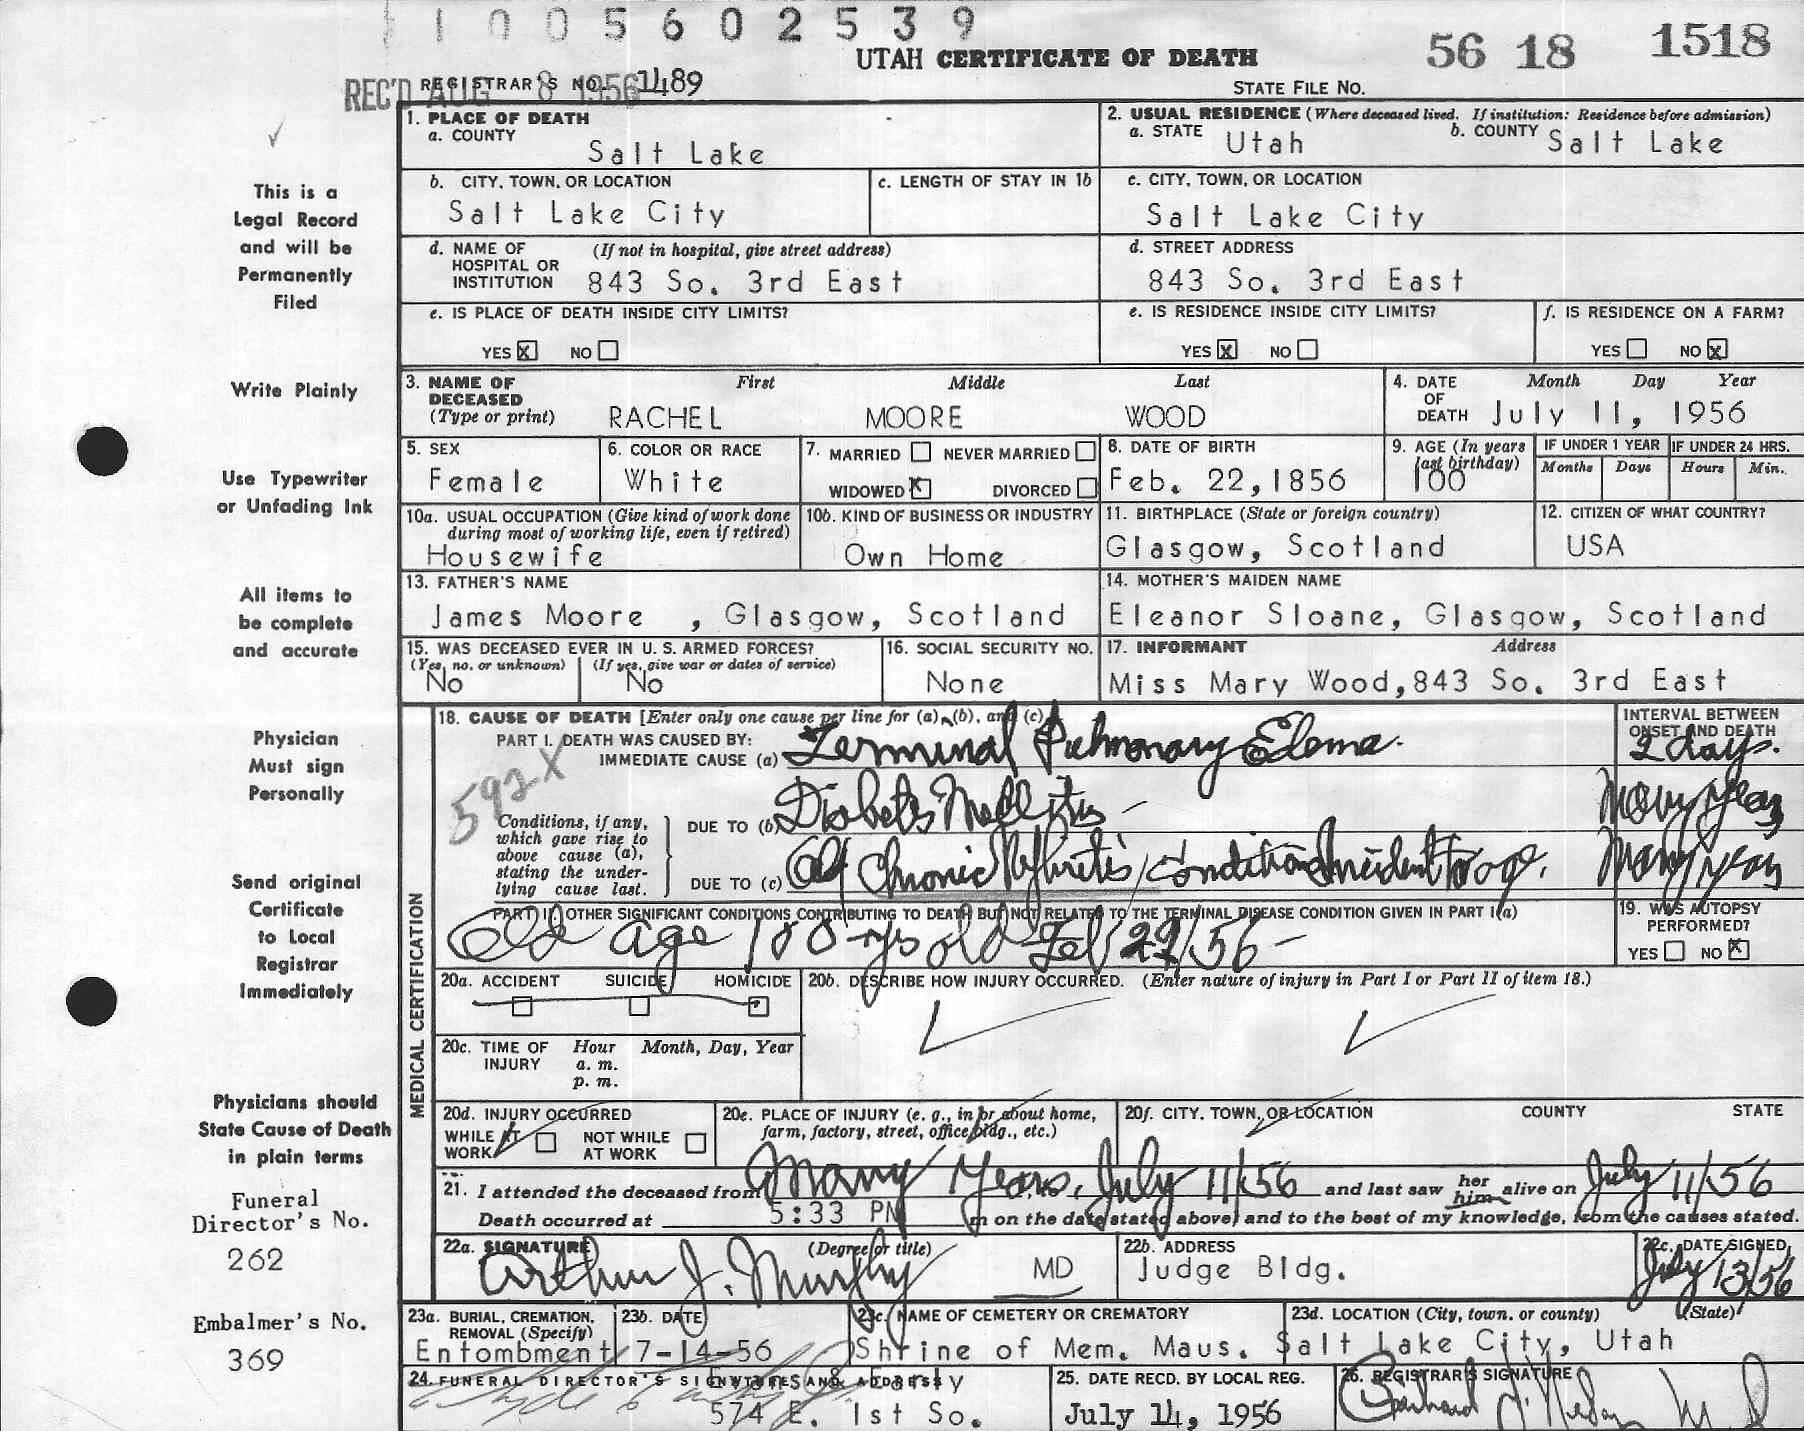 1005602539
UTAH CERTIFICATE OF DEATH
56 18 1518
REC'D AUG 8 1956
REGISTRAR'S NO. 1489
STATE FILE NO.
This is a
Legal Record
and will be
Permanently
Filed
Write Plainly
Use Typewriter
or Unfading Ink
All items to
be complete
and accurate
Physician
Must sign
Personally
Send original
Certificate
to Local
Registrar
Immediately
Physicians should
State Cause of Death
in plain terms
Funeral
Director's No.
262
Embalmer's No.
369
1. PLACE OF DEATH
a. COUNTY
Salt Lake
2. USUAL RESIDENCE (Where deceased lived. If institution: Residence before admission)
a. STATE Utah b. COUNTY Salt Lake
b. CITY, TOWN, OR LOCATION
Salt Lake City
c. LENGTH OF STAY IN 1b
c. CITY, TOWN, OR LOCATION
Salt Lake City
d. NAME OF (If not in hospital, give street address)
HOSPITAL OR
INSTITUTION 843 So. 3rd East
d. STREET ADDRESS
843 So. 3rd East
e. IS PLACE OF DEATH INSIDE CITY LIMITS?
YES X NO
e. IS RESIDENCE INSIDE CITY LIMITS?
YES X NO
f. IS RESIDENCE ON A FARM?
YES NO X
3. NAME OF First Middle Last
DECEASED
(Type or print) RACHEL MOORE WOOD
4. DATE Month Day Year
OF
DEATH July 11, 1956
5. SEX
Female
6. COLOR OR RACE
White
7. MARRIED NEVER MARRIED
WIDOWED X DIVORCED
8. DATE OF BIRTH
Feb. 22,1856
9. AGE (In years
last birthday)
100
IF UNDER 1 YEAR
Months Days
IF UNDER 24 HRS.
Hours Min.
10a. USUAL OCCUPATION (Give kind of work done
during most of working life, even if retired)
Housewife
10b. KIND OF BUSINESS OR INDUSTRY
Own Home
11. BIRTHPLACE (State or foreign country)
Glasgow, Scotland
12. CITIZEN OF WHAT COUNTRY?
USA
13. FATHER'S NAME
James Moore , Glasgow, Scotland
14. MOTHER'S MAIDEN NAME
Eleanor Sloane, Glasgow, Scotland
15. WAS DECEASED EVER IN U. S. ARMED FORCES?
(Yes, no, or unknown) (If yes, give war or dates of service)
No No
16. SOCIAL SECURITY NO.
None
17. INFORMANT Address
Miss Mary Wood,843 So. 3rd East
MEDICAL CERTIFICATION
18. CAUSE OF DEATH [Enter only one cause per line for (a), (b), and (c).
PART I. DEATH WAS CAUSED BY:
IMMEDIATE CAUSE (a) Terminal Pulmonary Edema.
592X
Conditions, if any,
which gave rise to
above cause (a),
stating the under-
lying cause last.
DUE TO (b) Diabetes Mellitus
DUE TO (c) Chronic Nephritis, Condition Incident to age.
INTERVAL BETWEEN
ONSET AND DEATH
2 days.
Many years
Many years
PART II. OTHER SIGNIFICANT CONDITIONS CONTRIBUTING TO DEATH BUT NOT RELATED TO THE TERMINAL DISEASE CONDITION GIVEN IN PART I(a)
Old age 100 yrs old Feb 22/56
19. WAS AUTOPSY
PERFORMED?
YES NO X
20a. ACCIDENT SUICIDE HOMICIDE
20b. DESCRIBE HOW INJURY OCCURRED. (Enter nature of injury in Part I or Part II of item 18.)
20c. TIME OF Hour Month, Day, Year
INJURY a. m.
p. m.
20d. INJURY OCCURRED
WHILE AT NOT WHILE
WORK AT WORK
20e. PLACE OF INJURY (e. g., in or about home,
farm, factory, street, office bldg., etc.)
20f. CITY, TOWN, OR LOCATION COUNTY STATE
21. I attended the deceased from Many Years, July 11/56 and last saw her him alive on July 11/56
Death occurred at 5:33 PM m on the date stated above; and to the best of my knowledge, from the causes stated.
22a. SIGNATURE (Degree or title)
Arthur J. Murphy MD
22b. ADDRESS
Judge Bldg.
22c. DATE SIGNED
July 13/56
23a. BURIAL, CREMATION,
REMOVAL (Specify)
Entombment
23b. DATE
7-14-56
23c. NAME OF CEMETERY OR CREMATORY
Shrine of Mem. Maus.
23d. LOCATION (City, town, or county) (State)
Salt Lake City, Utah
24. FUNERAL DIRECTOR'S SIGNATURE AND ADDRESS
Evans & Early
574 E. 1st So.
25. DATE RECD. BY LOCAL REG.
July 14, 1956
26. REGISTRAR'S SIGNATURE